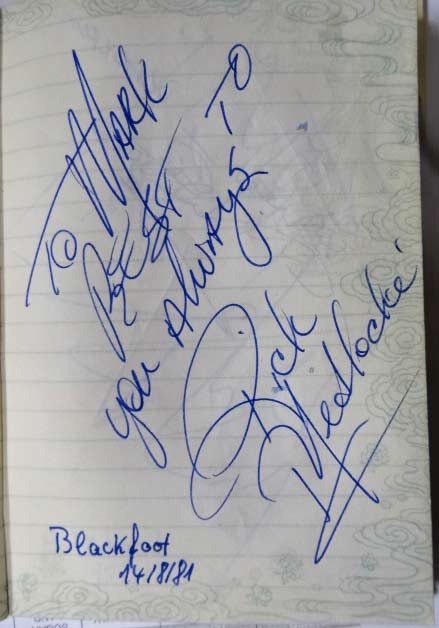 To Mark
Best to
you Always
Rick
Medlocke
Blackfoot
14/8/81